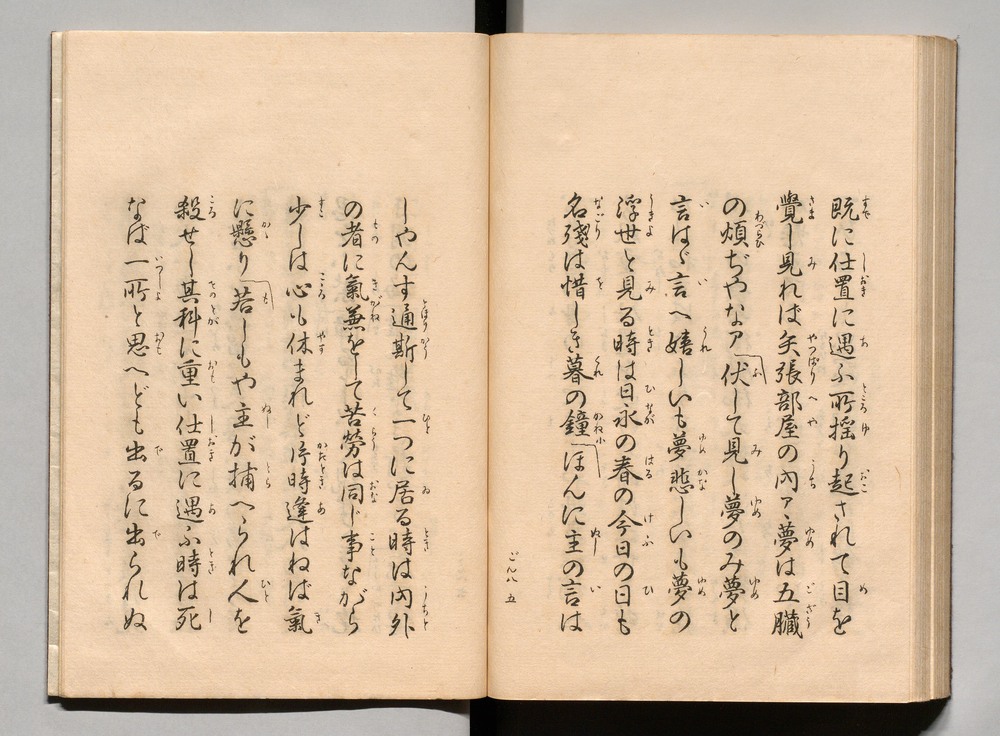 既に仕置に遇ふ所揺り起されて目を
覺し見れば矢張部屋の内アヽ夢は五臓
の煩ぢやなア伏して見し夢のみ夢と
言はゞ言へ嬉しいも夢悲しいも夢の
浮世と見る時は日永の春の今日の日も
名殘は惜しき暮の鐘ほんに主の言は
ごん八 五
しやんす通斯して一つに居る時は内外
の者に氣兼をして苦勞は同じ事ながら
少しは心も休まれど片時逢はねば氣
に懸り若しもや主が捕へられ人を
殺せし其科に重い仕置に遇ふ時は死
なば一所と思へども出るに出られぬ